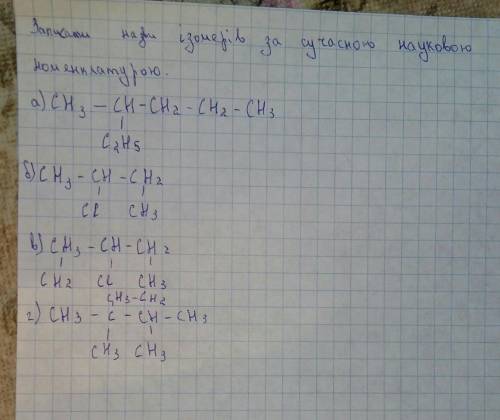 Записати назви ізомерів за сучасною науковою
номенклатурою.
а) CH3 — CH — CH2 — CH2 — CH3
C2H5
б) CH3 — CH — CH2
Cl CH3
в) CH3 — CH — CH2
CH2 Cl CH3
CH3 — CH2
г) CH3 — C — CH — CH3
CH3 CH3